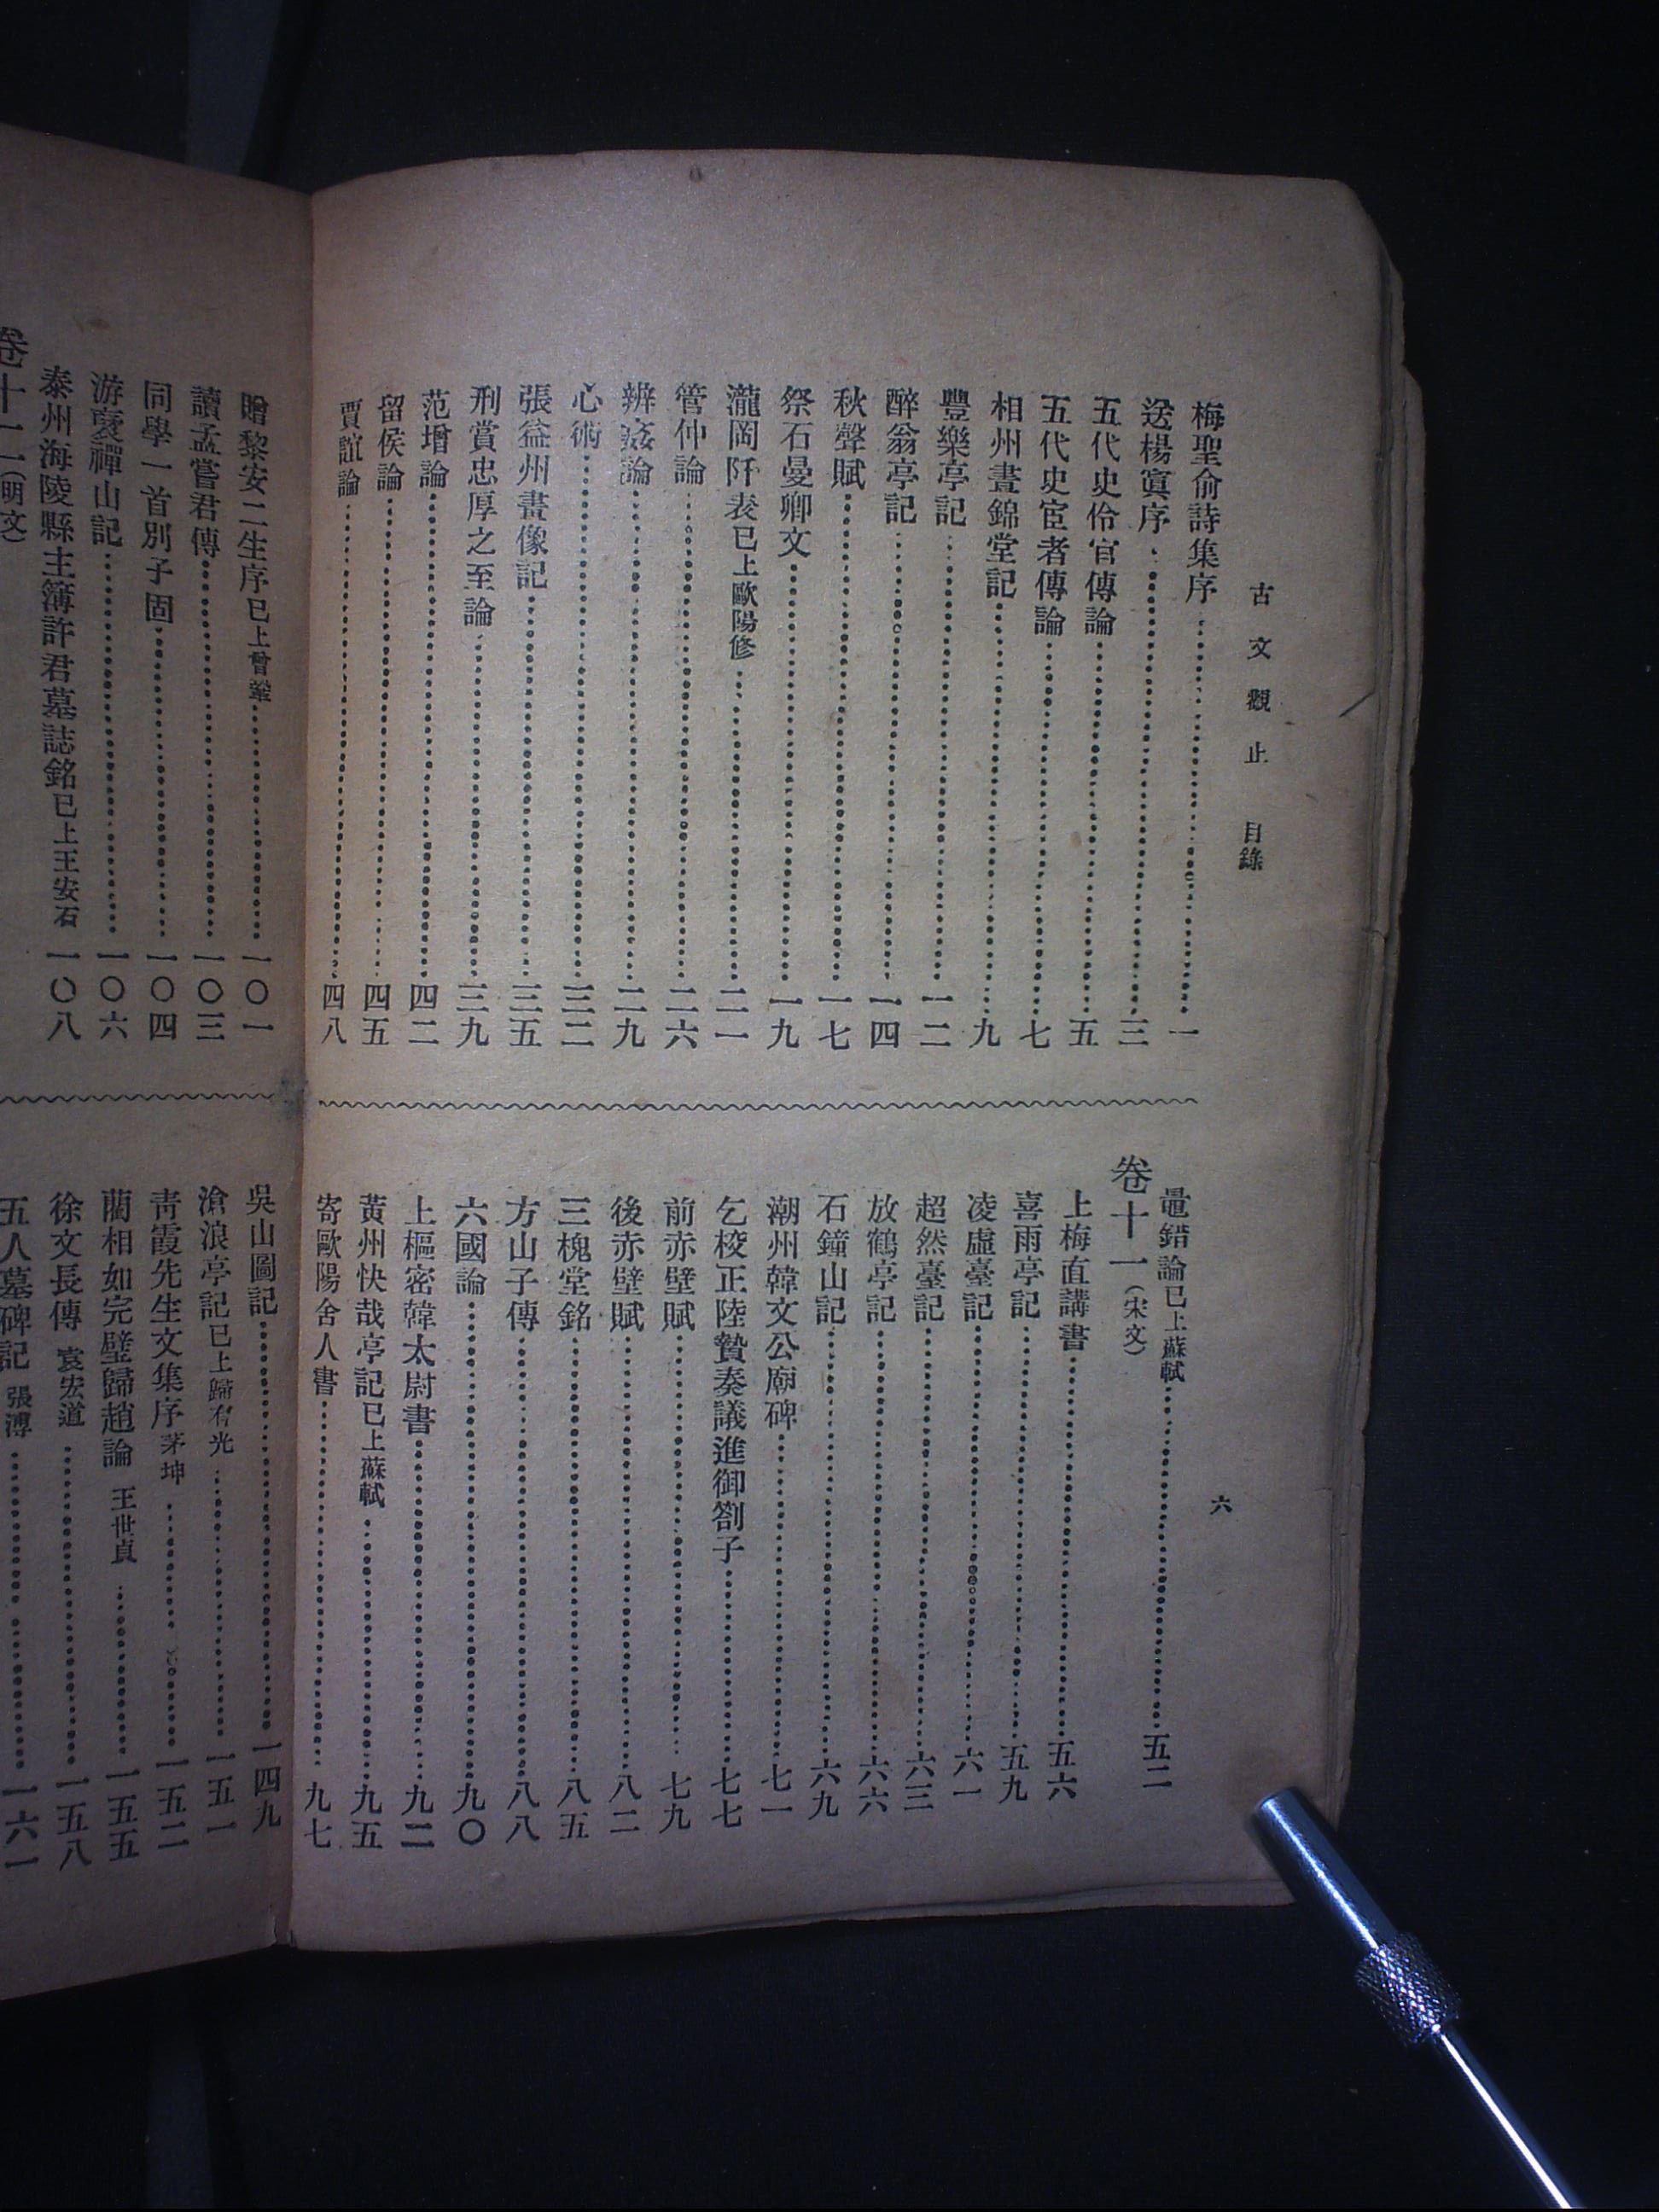 古文觀止 目錄 六
梅聖俞詩集序 一
送楊寘序 三
五代史伶官傳論 五
五代史宦者傳論 七
相州晝錦堂記 九
豐樂亭記 一二
醉翁亭記 一四
秋聲賦 一七
祭石曼卿文 一九
瀧岡阡表已上歐陽修 二一
管仲論 二六
辨姦論 二九
心術 三二
張益州畫像記 三五
刑賞忠厚之至論 三九
范增論 四二
留侯論 四五
賈誼論 四八
鼂錯論已上蘇軾 五二
卷十一(宋文)
上梅直講書 五六
喜雨亭記 五九
凌虛臺記 六一
超然臺記 六三
放鶴亭記 六六
石鐘山記 六九
潮州韓文公廟碑 七一
乞校正陸贄奏議進御劄子 七七
前赤壁賦 七九
後赤壁賦 八二
三槐堂銘 八五
方山子傳 八八
六國論 九〇
上樞密韓太尉書 九二
黃州快哉亭記已上蘇軾 九五
寄歐陽舍人書 九七
贈黎安二生序已上曾鞏 一〇一
讀孟嘗君傳 一〇三
同學一首別子固 一〇四
游襃禪山記 一〇六
泰州海陵縣主簿許君墓誌銘已上王安石 一〇八
卷十二(明文)
吳山圖記 一四九
滄浪亭記已上歸有光 一五一
青霞先生文集序茅坤 一五二
藺相如完璧歸趙論 王世貞 一五五
徐文長傳 袁宏道 一五八
五人墓碑記 張溥 一六一